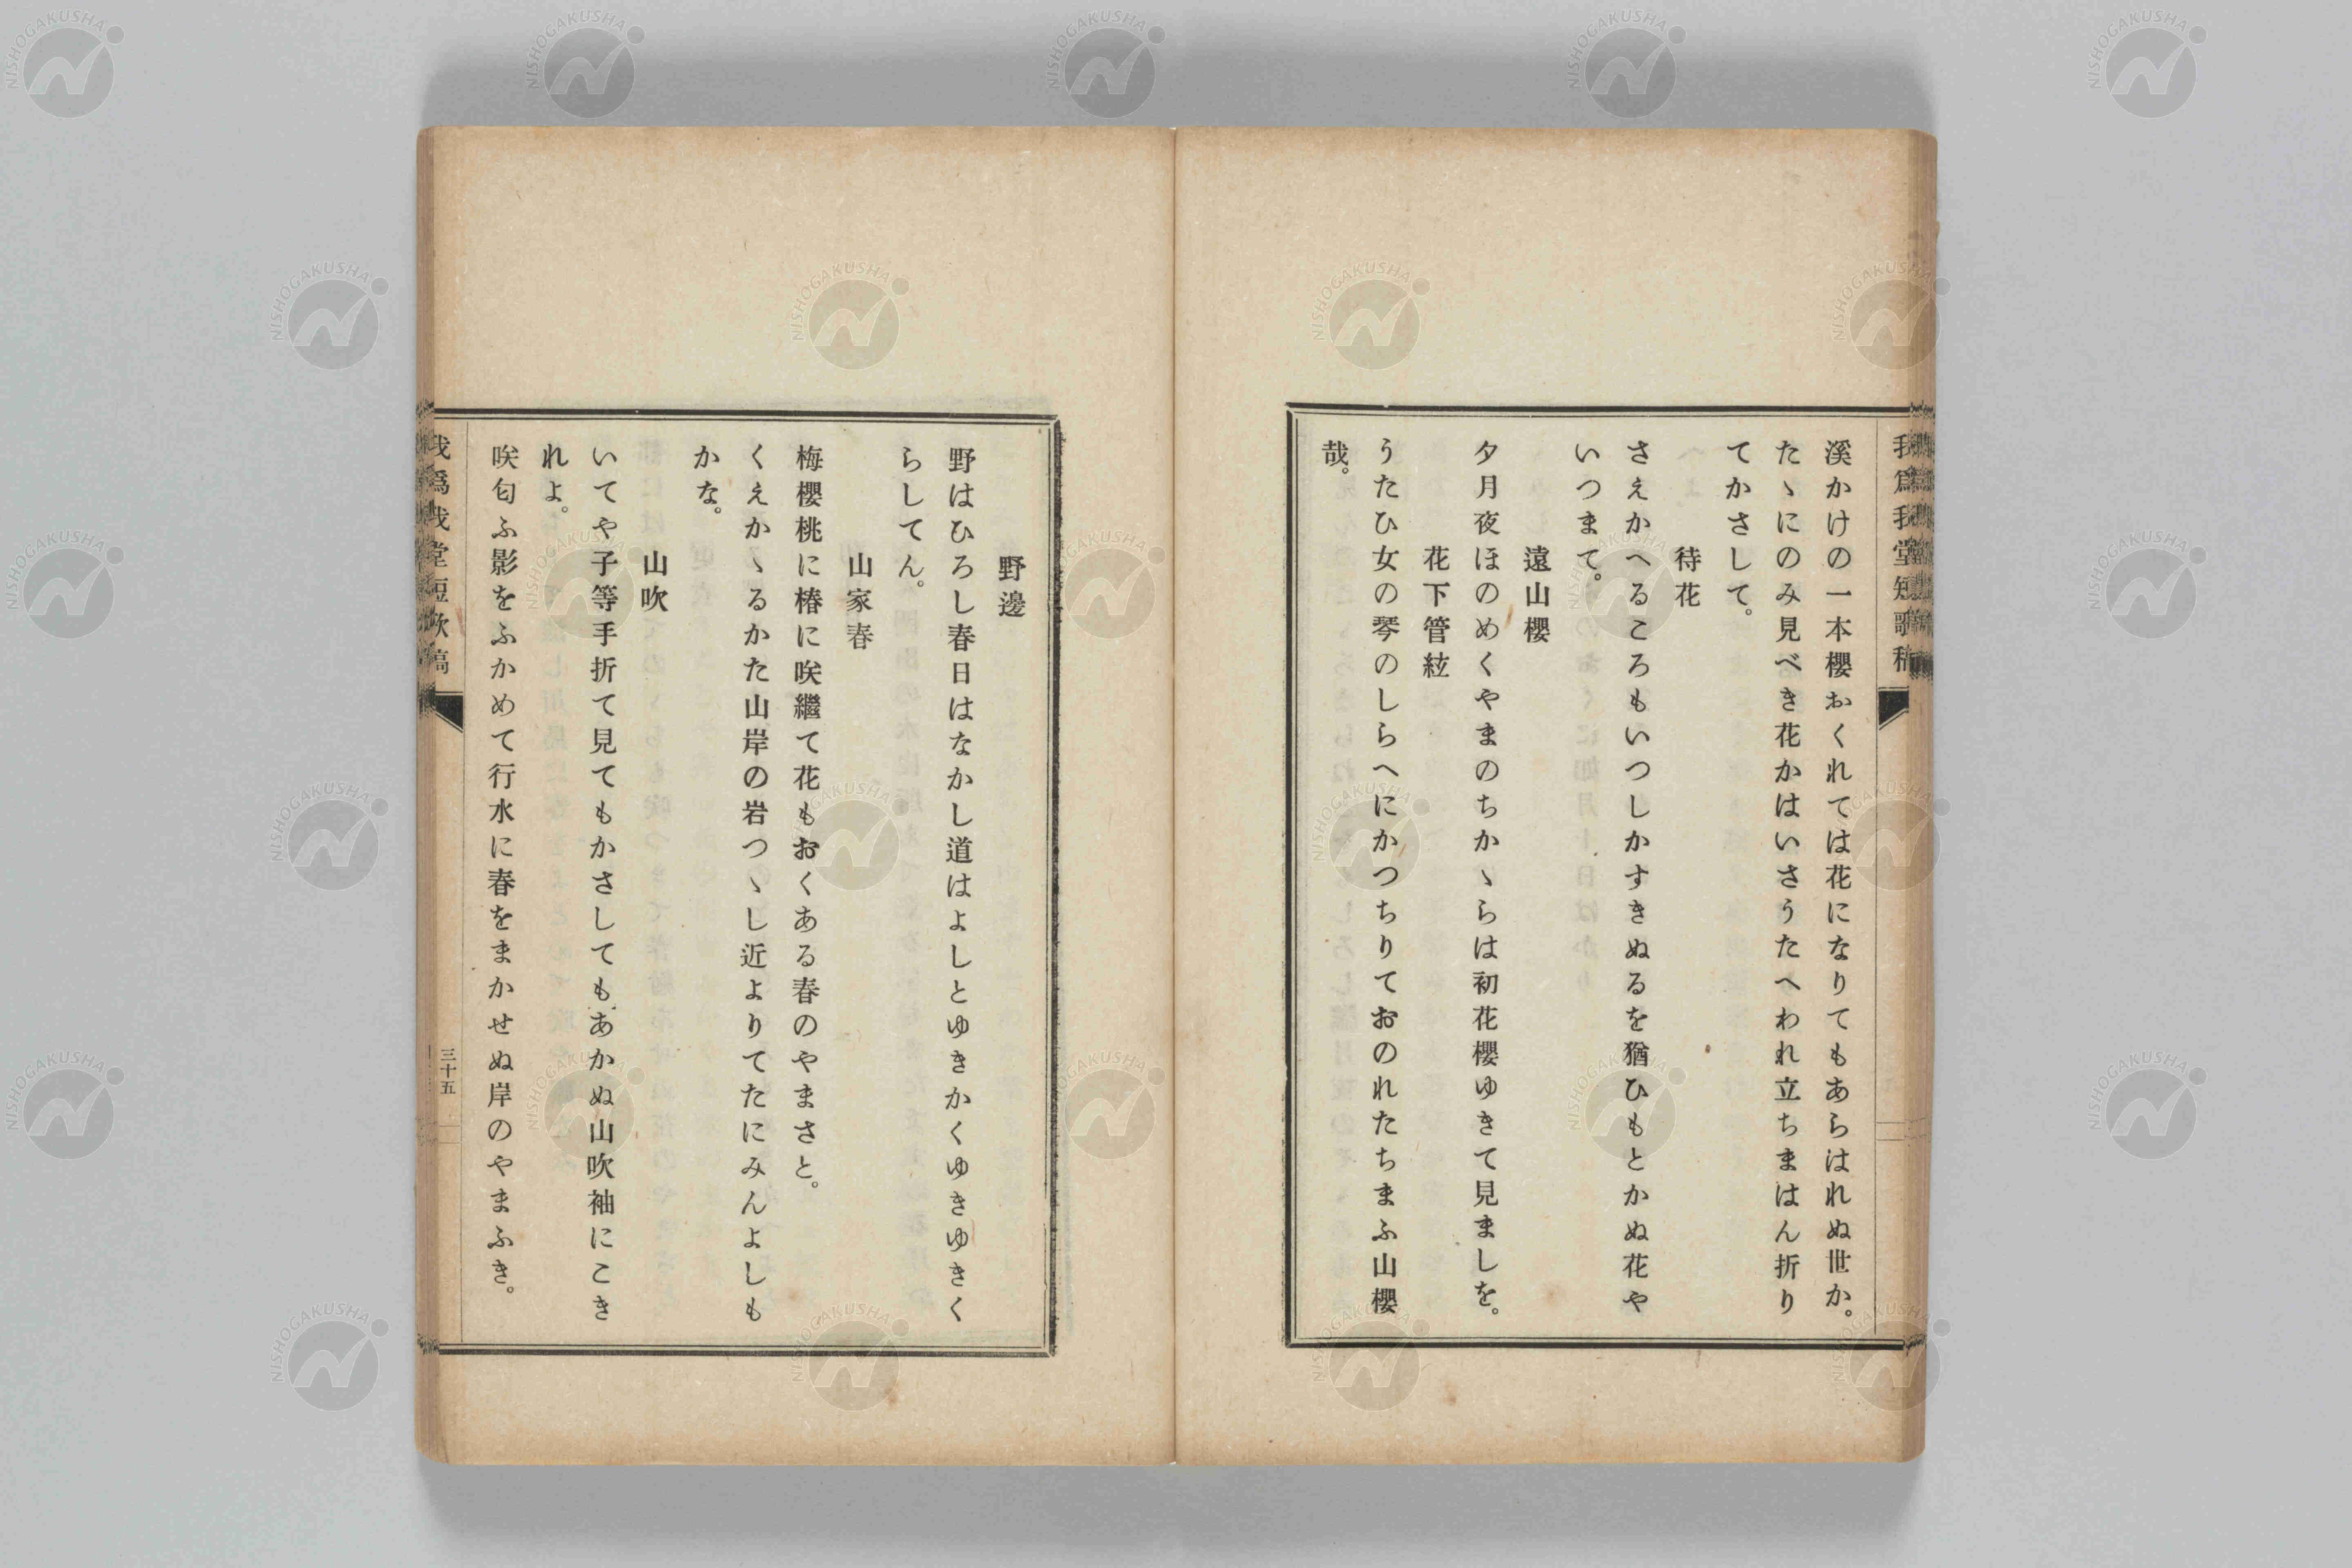 我爲我堂短歌稿
溪かけの一本櫻おくれては花になりてもあらはれぬ世か。
たゝにのみ見べき花かはいさうたへわれ立ちまはん折り
てかさして。
待花
さえかへるころもいつしかすきぬるを猶ひもとかぬ花や
いつまて。
遠山櫻
夕月夜ほのめくやまのちかゝらは初花櫻ゆきて見ましを。
花下管絃
うたひ女の琴のしらへにかつちりておのれたちまふ山櫻
哉。
野邊
野はひろし春日はなかし道はよしとゆきかくゆきゆきく
らしてん。
山家春
梅櫻桃に椿に咲繼て花もおくある春のやまさと。
くえかゝるかた山岸の岩つゝし近よりてたにみんよしも
かな。
山吹
いてや子等手折て見てもかさしてもあかぬ山吹袖にこき
れよ。
咲匂ふ影をふかめて行水に春をまかせぬ岸のやまふき。
我爲我堂短歌稿
三十五
NISHOGAKUSHA